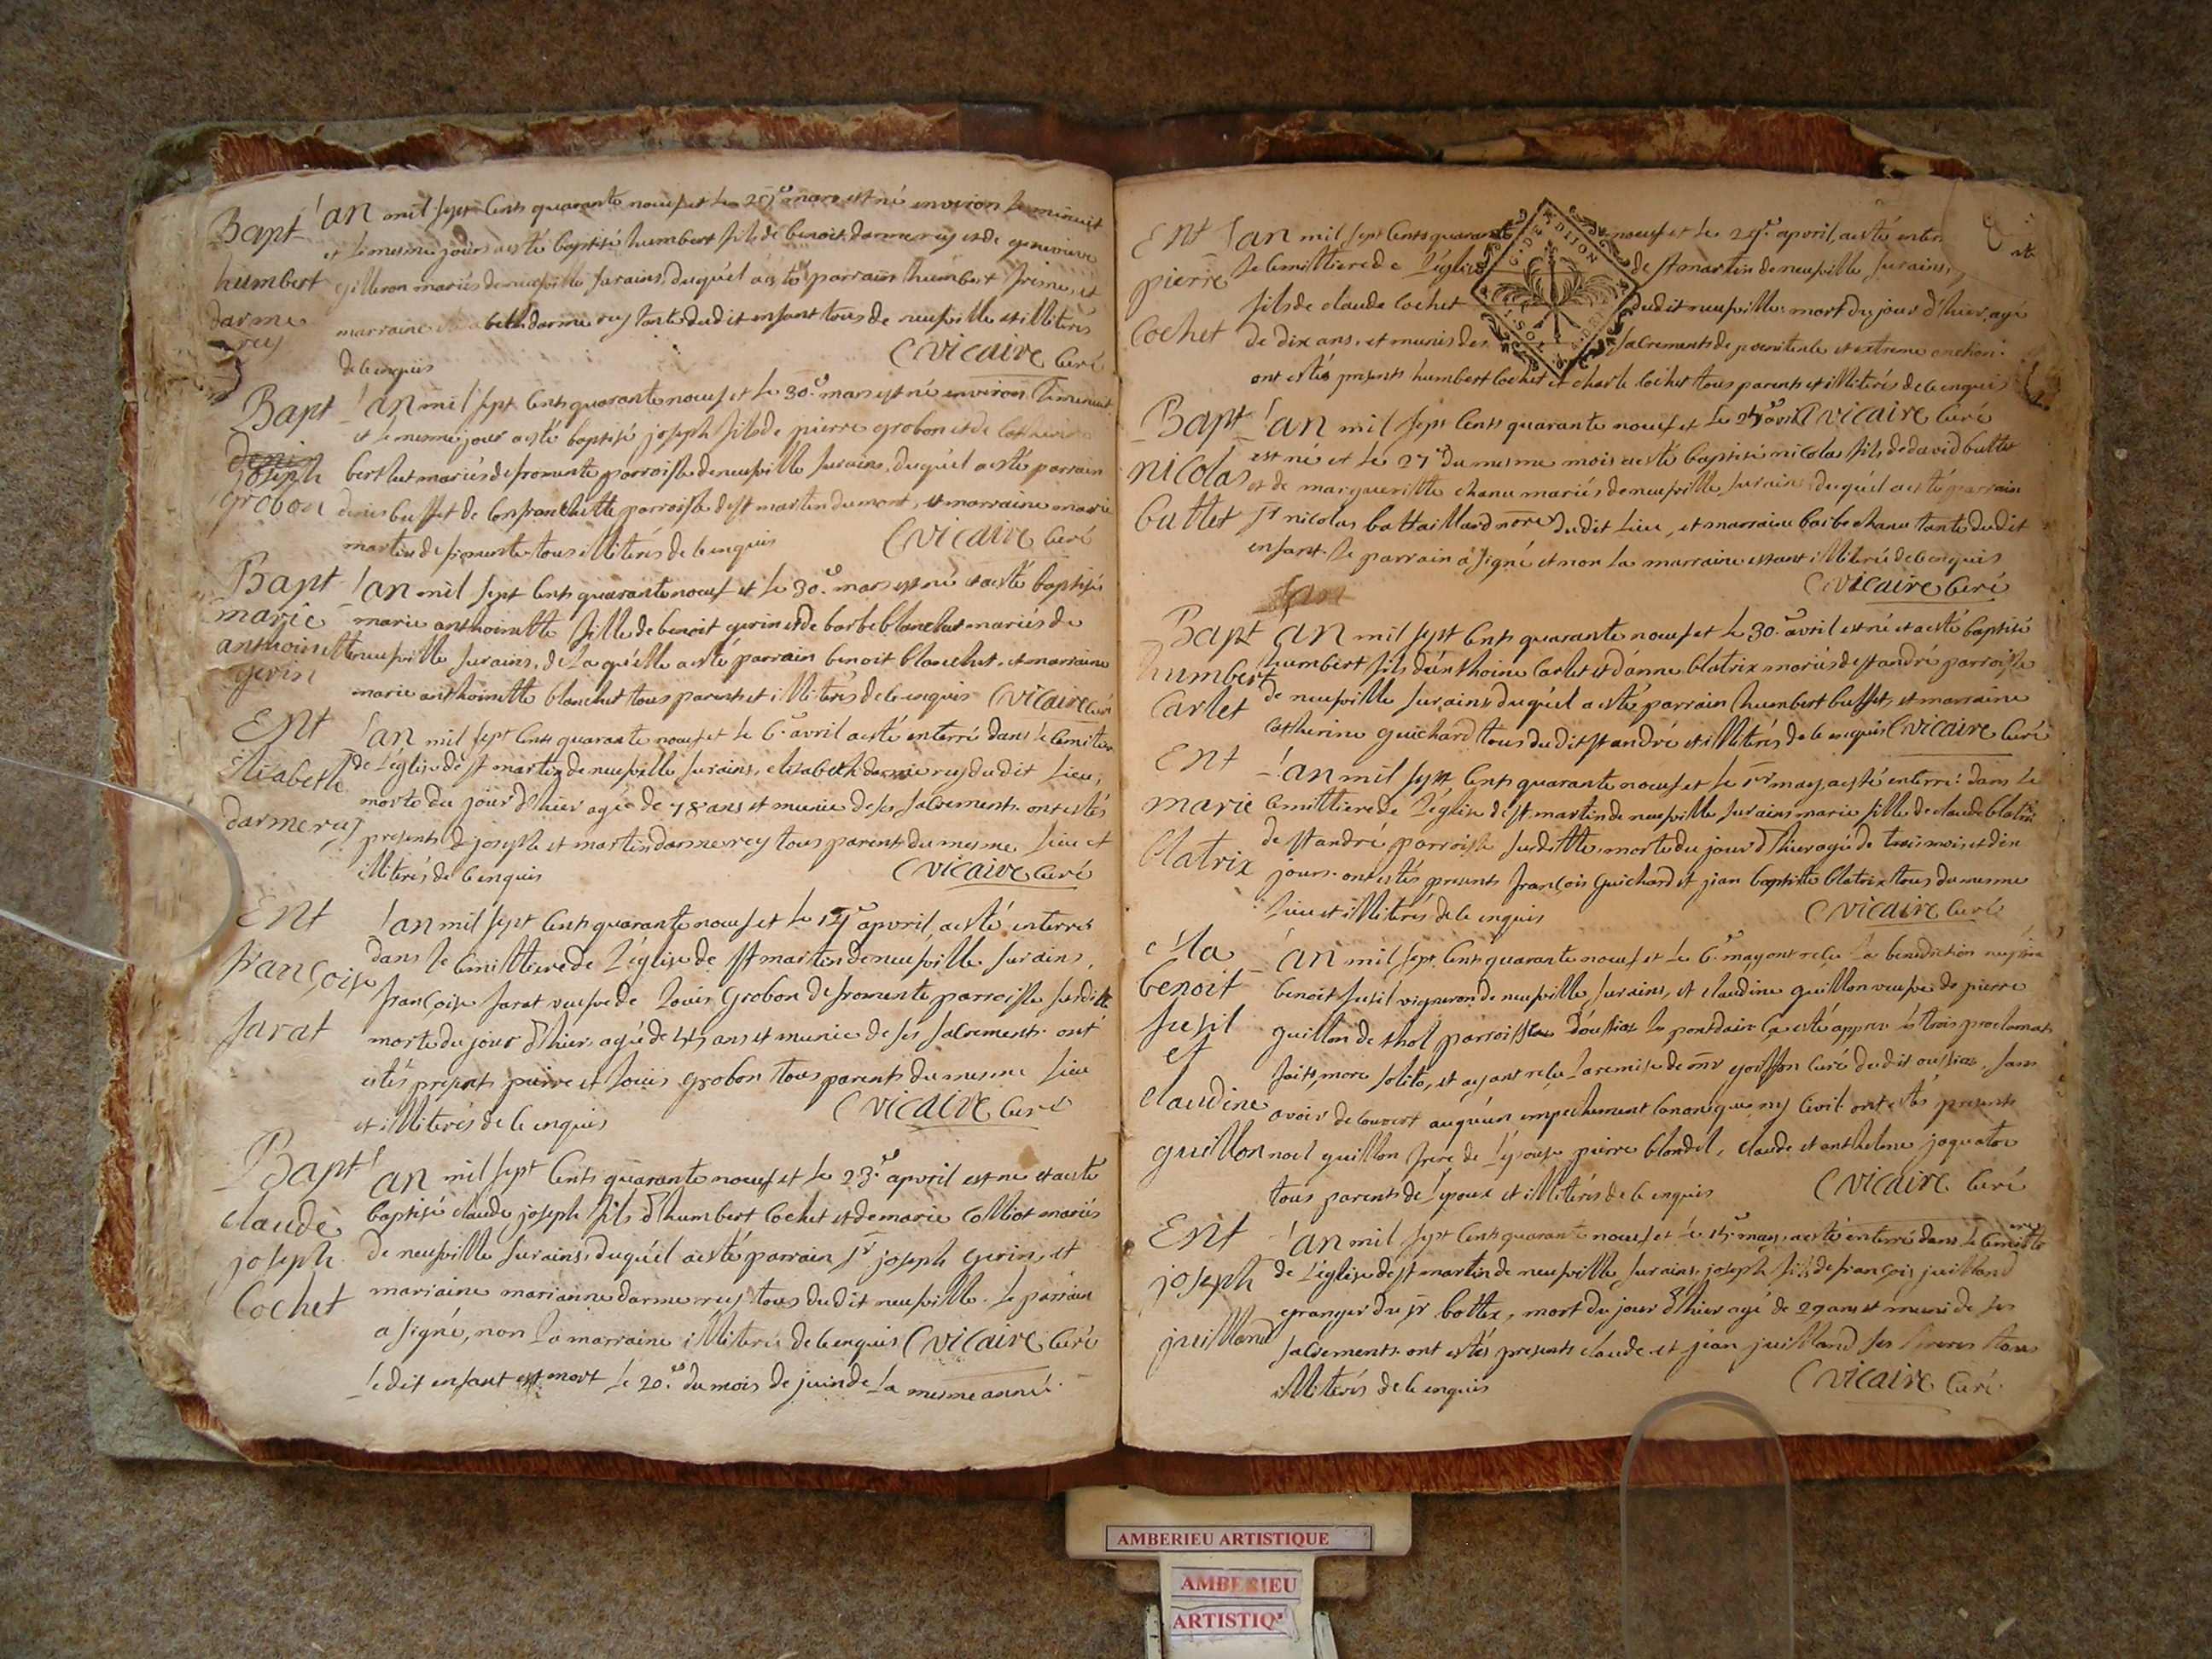 Bapt
humbert
darme
rey
l'an mil sept cents quarante noeuf et le mars est né environ le minuit
et le mesme jour a esté baptisé humbert fils de benoit darmerey et de genevieve
gilleron mariés de neufville sur ains, duquel a esté parrain humbert et
marraine darmerey tante dudit enfant tous de neufville et illiterés
de ce enquis
C vicaire Curé
Bapt
joseph
grobon
l'an mil sept cents quarante noeuf et le 30e mars est né environ le minuit
et le mesme jour a esté baptisé joseph fils de pierre grobon et de Catherine
berthet mariés de fromente parroisse de neufville sur ains, duquel a esté parrain
denis buffet de Confranchette parroisse de st martin du mont, et marraine marie
martin de fromente tous illiterés de ce enquis
C vicaire Curé
Bapt
marie
anthoinette
gerin
l'an mil sept cents quarante noeuf et le 30e mars est né et a esté baptisé
marie anthoinette fille de benoit gerin et de barbe blanchet mariés de
neufville sur ains, de laquelle a esté parrain benoit blanchet, et marraine
marie anthoinette blanchet tous parents et illiterés de ce enquis C vicaire Curé
Ent
Elisabeth
darmerey
l'an mil sept cents quarante noeuf et le 6e avril a esté enterré dans le Cemitiere
de l'église de st martin de neufville sur ains, elisabeth darmerey dudit lieu,
morte du jour d'hier agée de 78 ans et munie de ses sacrements. ont estés
presents joseph et martin darmerey tous parents du mesme lieu et
illiterés de ce enquis
C vicaire Curé
Ent
françoise
sarat
l'an mil sept cents quarante noeuf et le apvril, a esté enterré
dans le Cemittiere de l'église de st martin de neufville sur ains,
françoise sarat veufve de louis Grobon de fromente parroisse susditte
morte du jour d'hier agée de ans et munie de ses sacrements. ont
estés presents pierre et louis grobon tous parents du mesme lieu
et illiterés de ce enquis
C vicaire Curé
Bapt
claude
joseph
Cochet
l'an mil sept Cents quarante noeuf et le 23e apvril est né et a esté
baptisé claude joseph fils d'humbert Cochet et de marie Colliot mariés
de neufville sur ains, duquel a esté parrain sr joseph gerin, et
marraine marianne darmerey tous dudit neufville. le parrain
a signé, non la marraine illiterée de ce enquis C vicaire Curé
ledit enfant est mort le 20e du mois de juin de la mesme année.
Ent
pierre
Cochet
l'an mil sept Cents quarante noeuf et le apvril, a esté enterré
le Cemittiere de l'église de st martin de neufville sur ains,
fils de claude Cochet dudit neufville mort du jour d'hier, agé
de dix ans, et munis des sacrements de poenitence et extreme onction.
ont estés presents humbert Cochet et charle Cochet tous parents et illiterés de ce enquis
G. DE DIJON
C vicaire Curé
Bapt
nicolas
buttet
l'an mil sept Cents quarante noeuf et le avril
est né et le 27e du mesme mois a esté baptisé nicolas fils de david buttet
et de margueritte chanu mariés de neufville sur ains duquel a esté parrain
sr nicolas battaillard nore dudit lieu, et marraine barbe chanu tante dudit
enfant. le parrain a signé et non la marraine estant illiterée de ce enquis
C vicaire Curé
Bapt
humbert
Carlet
l'an mil sept Cents quarante noeuf et le 30e avril est né et a esté baptisé
humbert fils d'enthoine Carlet et d'anne blatrix mariés de st andré parroisse
de neufville sur ains duquel a esté parrain humbert buffet, et marraine
Catherine guichard tous dudit st andré et illiterés de ce enquis C vicaire Curé
Ent
marie
blatrix
l'an mil sept Cents quarante noeuf et le 1er may, a esté enterré dans le
Cemittiere de l'église de st martin de neufville sur ains marie fille de claude blatrix
de st andré parroisse susditte morte du jour d'hier agée de trois mois et dix
jours. ont estés presents françois Guichard et jean baptiste blatrix tous du mesme
lieu et illiterés de ce enquis
C vicaire Curé
benoit
fusil
et
claudine
guillon
l'an mil sept Cents quarante noeuf et le 6e may ont reçu la benediction nuptiale
benoit fusil vigneron de neufville sur ains, et claudine guillon veufve de pierre
guillon de thol parroisse d'oussias le pont dain les trois proclamations
faits, more solito, et ayant reçu la remise de mr goisson Curé dudit oussias, sans
avoir decouvert auqu'un empechement Canonique ny Civil. ont estés presents
noel guillon frere de l'épouse pierre blondel, claude et anthelme joquatoe
tous parents de l'époux et illiterés de ce enquis
C vicaire Curé
Ent
joseph
juilland
l'an mil sept Cents quarante noeuf et le may, a esté enterré dans le Cemittiere
de l'église de st martin de neufville sur ains, joseph fils de françois juilland
granger du sr bottex, mort du jour d'hier agé de 29 ans et muni de ses
sacrements. ont estés presents claude et jean juilland ses freres tous
illiterés de ce enquis
C vicaire Curé
AMBERIEU ARTISTIQUE
AMBERIEU
ARTISTIQ